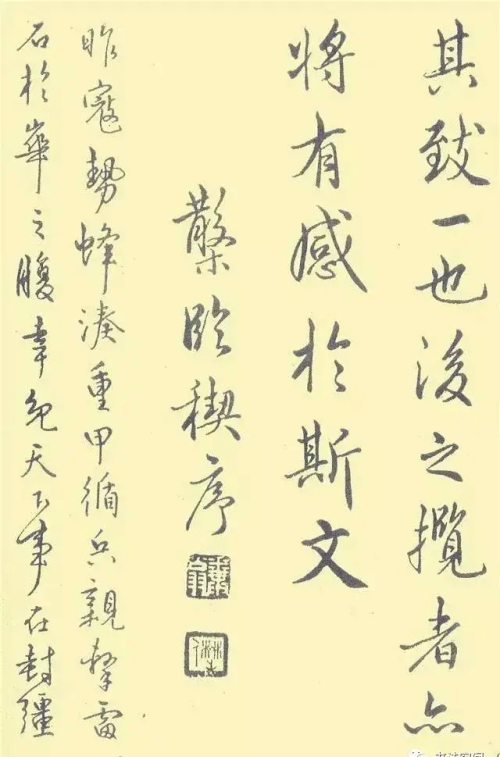 其致一也後之攬者亦
將有感於斯文
臨禊序
昨寇勢蜂湊重甲循兵親擊雷
石於華之腹幸免天下事在封疆